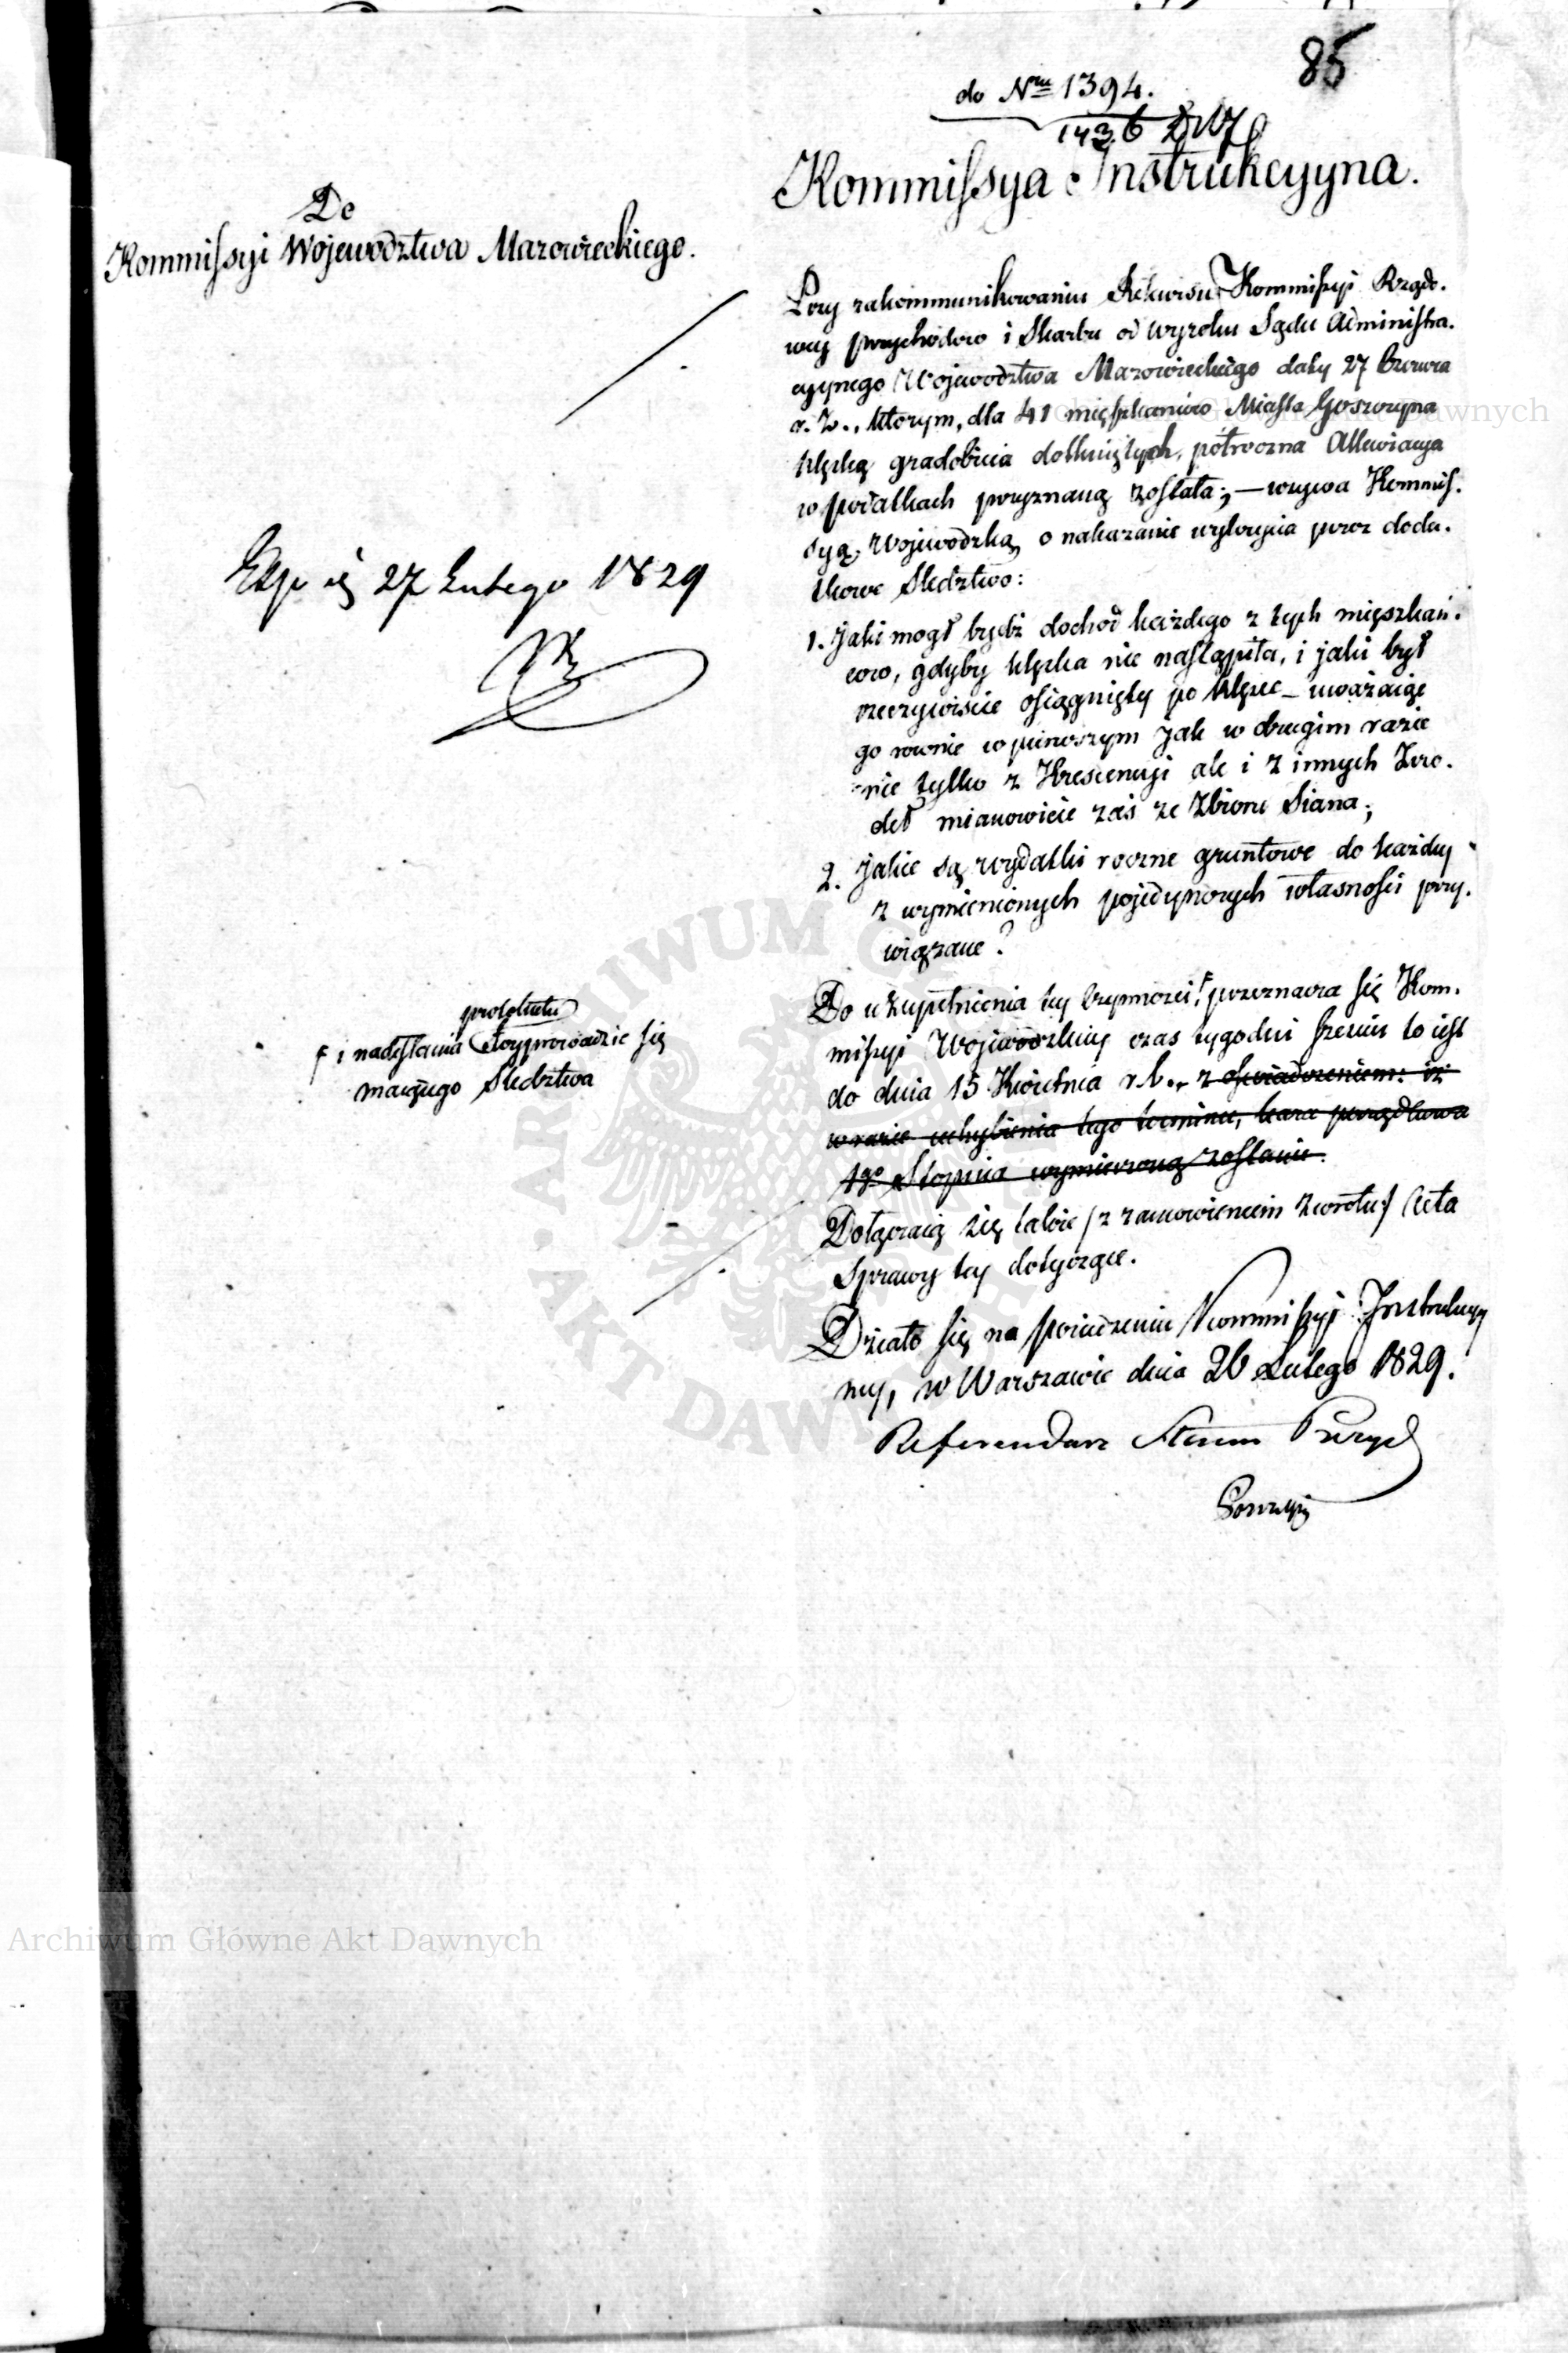 85
do Nru 1394.
1436 DW
Kommissya Instrukcyyna.
Do
Kommissyi Województwa Mazowieckiego.
Przy zakommunikowaniu Rekursu Kommissyi Rządo-
wey Przychodow i Skarbu od wyroku Sądu Administra-
cyynego Województwa Mazowieckiego daty 27 Czerwca
r. z., którym, dla 41 mięszkanców Miasta Goszczyna
klęską gradobicia dotkniętych, półroczna Allewiacya
w podatkach przyznaną została; — wzywa Kommis-
syą Wojewodzką o nakazanie wykrycia przez doda-
tkowe Sledztwo:
1. Jaki mogł bydź dochod każdego z tych mięszkań-
cow, gdyby klęska nie nastąpiła, i jaki był
rzeczywiscie osiągnięty po klęsce – uważaiąc
go rownie w pierwszym jak w drugim razie
nie tylko z Krescencyi ale i z innych Zrro-
deł mianowicie zaś ze Zbioru Siana;
2. Jakie są wydatki roczne gruntowe do każdey
z wymienionych pojedynczych własności przy-
wiązane?
Do uzupełnienia tey czynności, przeznacza się Kom-
missyi Wojewodzkiey czas tygodni sześciu to iest
do dnia 15 Kwietnia r. b., z oswiadczeniem: iż
w razie uchybienia tego terminu, kara porządkowa
1go Stopnia wymierzoną zostanie.
Dołączaią się także /z zamowieniem zwrotu/ Akta
Sprawy tey dotyczące.
Działo się na posiedzeniu Kommissyi Instrukcyy
ney, w Warszawie dnia 26 Lutego 1829.
Referendarz Stanu Prezyd
Exp 27 Lutego 1829
protokułu
i nadesłania wyprowadzic się
maiącego Sledztwa
Archiwum Główne Akt Dawnych
Archiwum Główne Akt Dawnych
ARCHIWUM GŁÓWNE AKT DAWNYCH